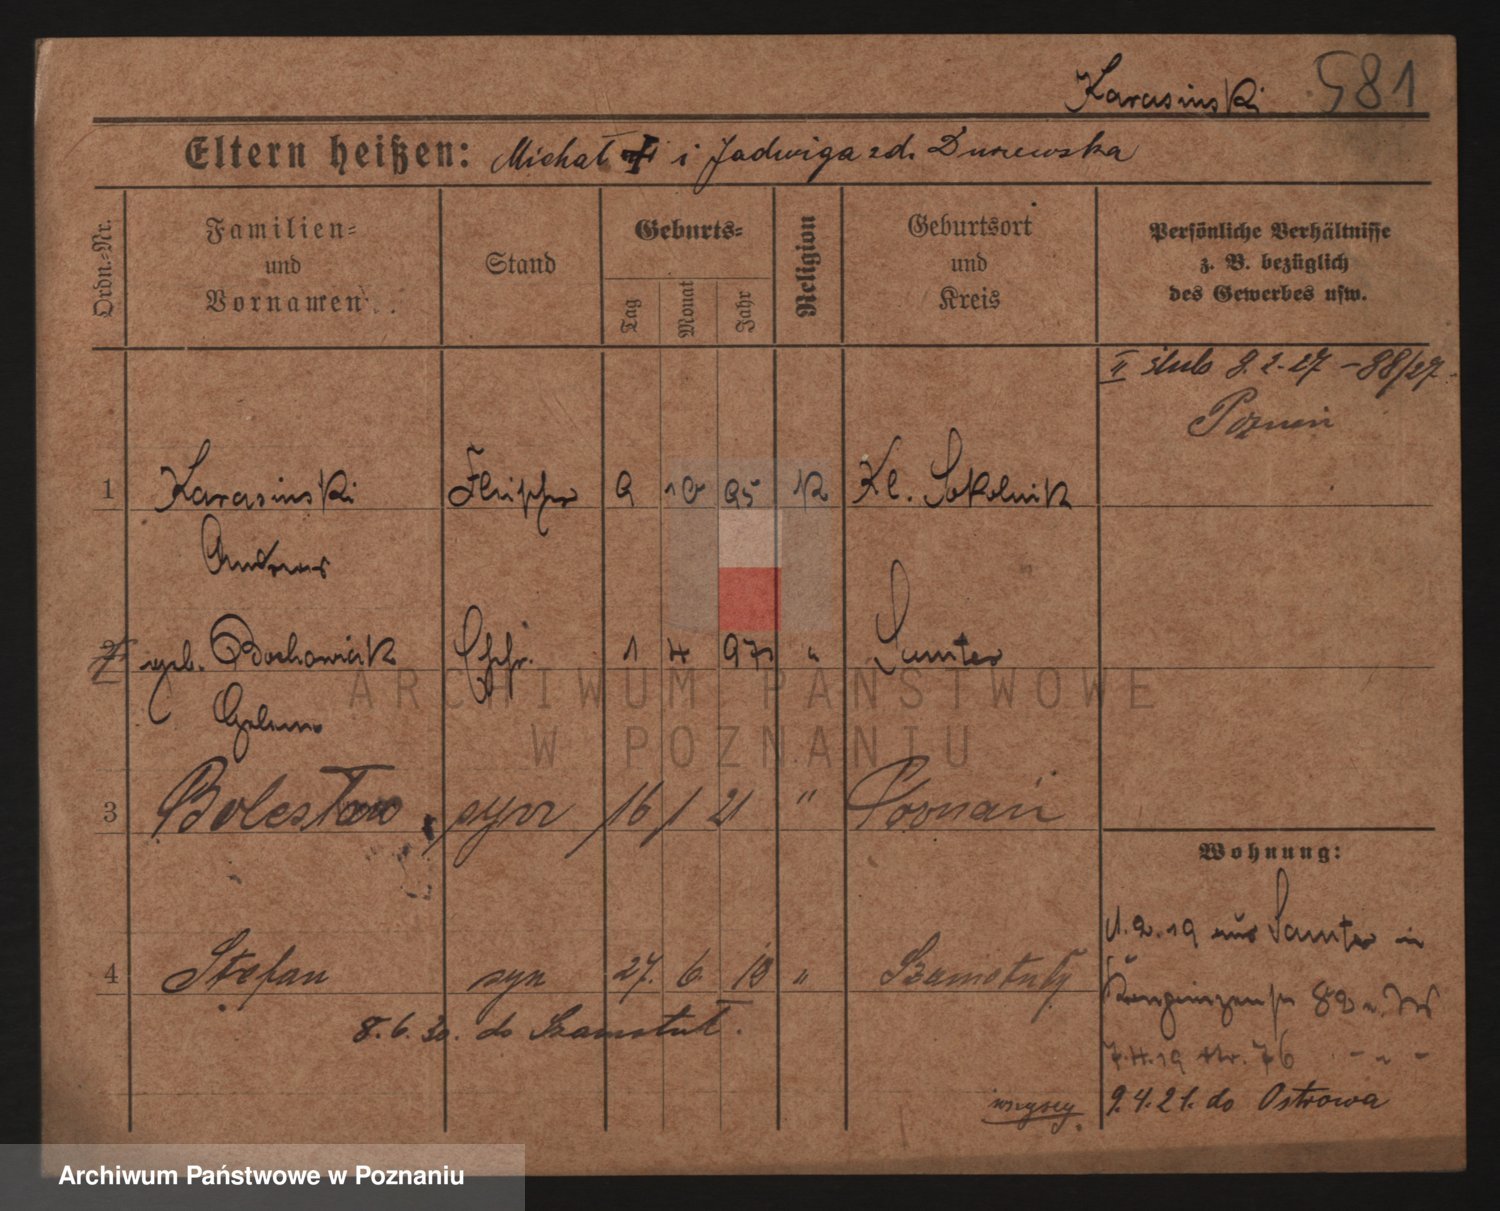 Karasinski 581
Eltern heißen: Michał + i Jadwiga zd. Durewska
Ordn.-Nr.
Familien-
und
Vornamen
Stand
Geburts-
Tag
Monat
Jahr
Religion
Geburtsort
und
Kreis
Persönliche Verhältnisse
z. B. bezüglich
des Gewerbes usw.
II ślub 8.2.27 - 88/27
Poznań
1 Karasinski Fleischer 9 10 95 K Kl. Sokolnik
Andreas
2 geb. Bochawiak Ehefr. 1 4 97 " Samter
3 Bolesław syn 16/1 21 " Poznań
Wohnung:
1.2.19 aus Samter in
4 Stefan syn 27. 6. 18 " Szamotuły
82
8.6.30. do Szamotuł.
7.4.19 76 - " -
wszyscy 9.4.21. do Ostrowa
ARCHIWUM PAŃSTWOWE
W POZNANIU
Archiwum Państwowe w Poznaniu